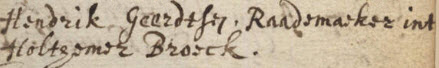 Hendrik Geerdtsen. Raademaeker int
Holtzemer Broeck.